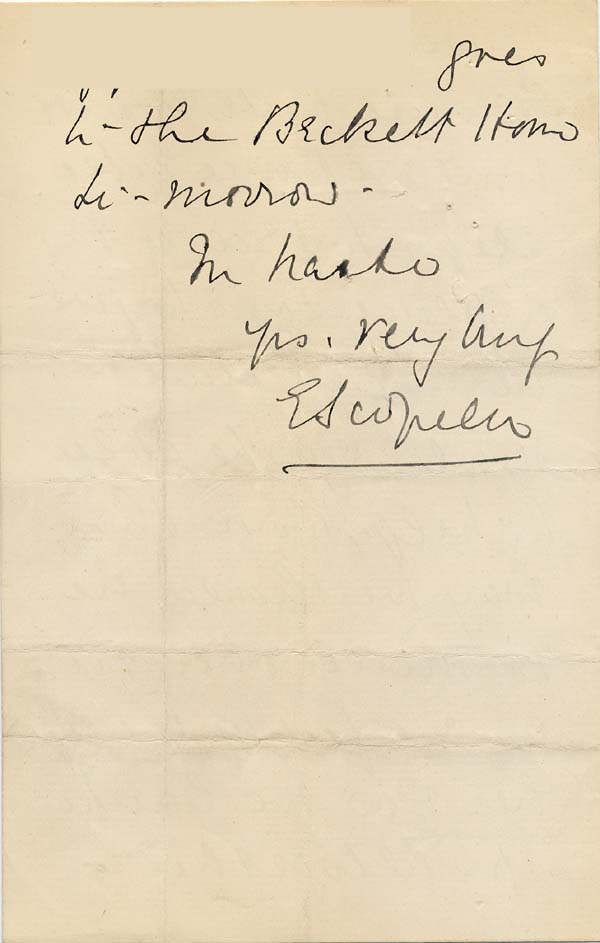 goes
to the Beckett Home
to-morrow -
In haste
yrs. very truly